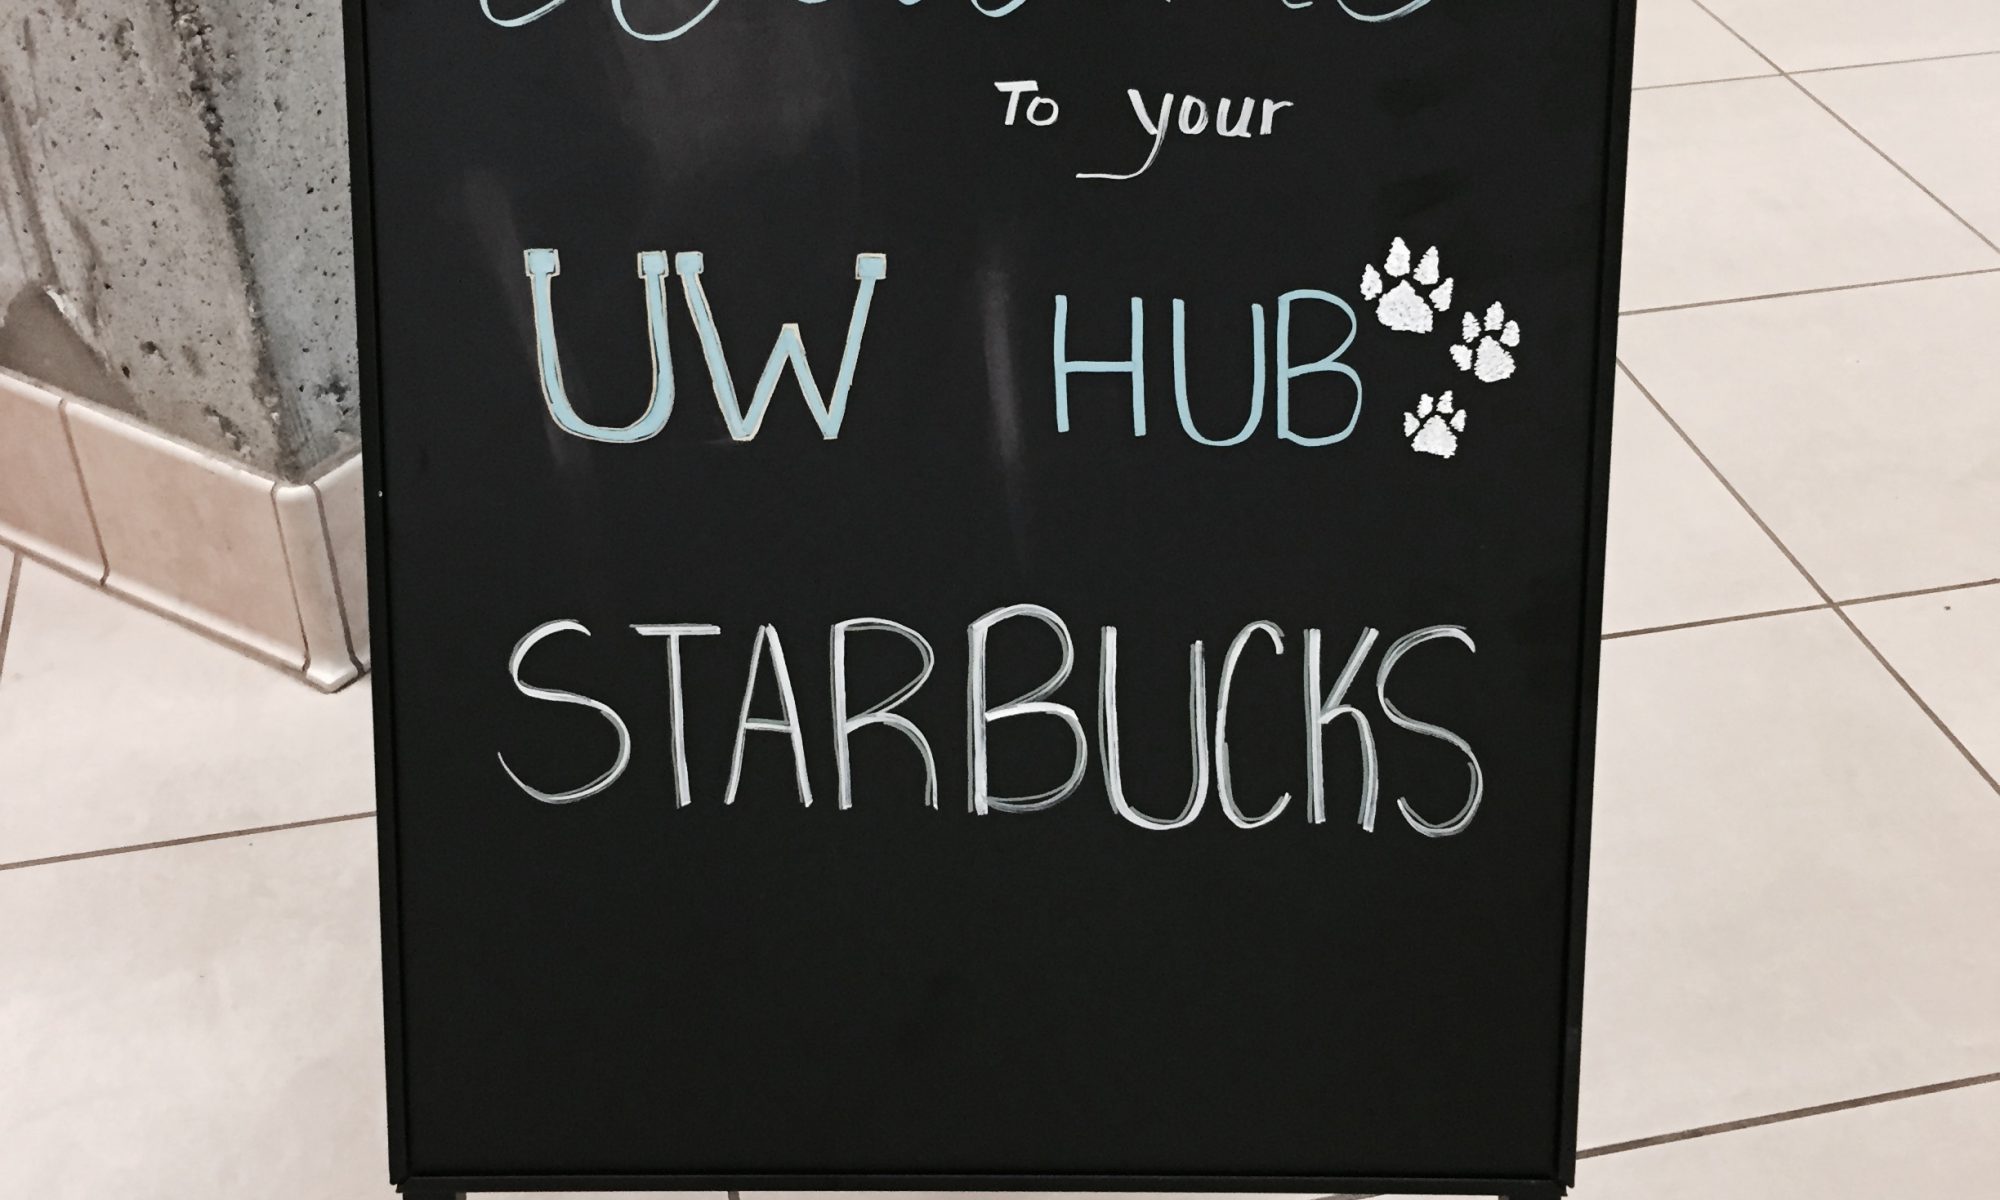 To your
UW HUB
STARBUCKS